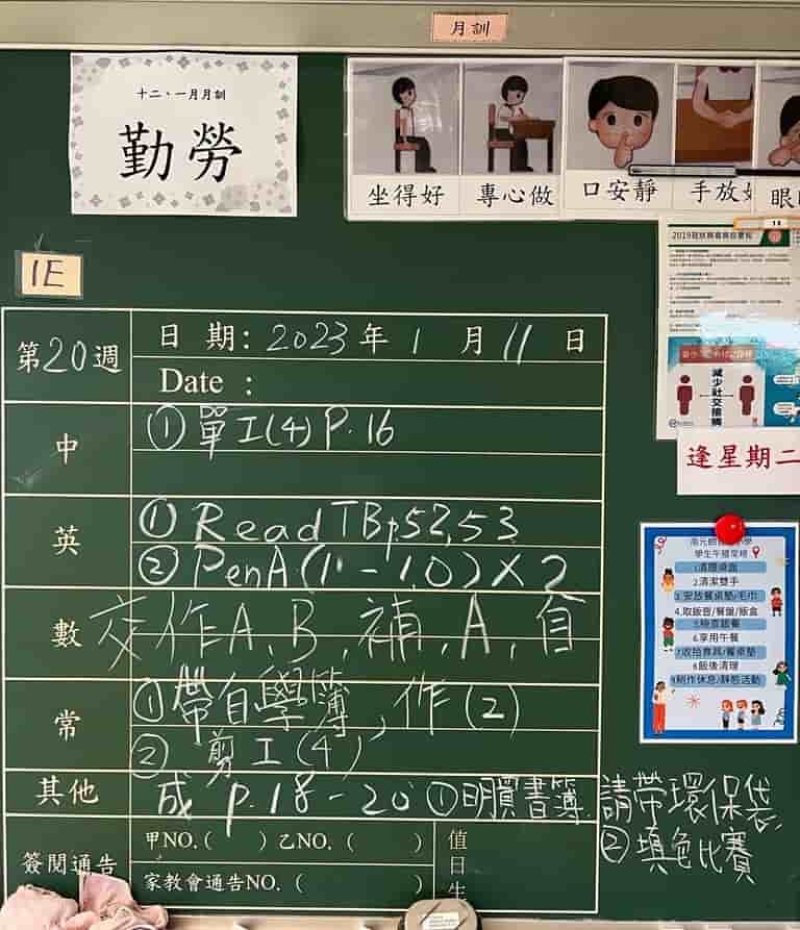 月訓
十二、一月月訓
勤勞
坐得好
專心做
口安靜
手放好
眼
1E
第20週
日 期: 2023 年 1 月 11 日
Date :
中
① 單工(4) P.16
英
① Read TB p.52,53
② PenA(1 - 10) X 2
數
交作A, B, 補, A, 自
常
① 帶自學簿, 作(2)
② 剪工(4)
其他
成 p.18-20 ① 明買書簿, 請帶環保袋,
② 填色比賽
簽閱通告
甲NO. ( ) 乙NO. ( )
家教會通告NO. ( )
值日生
減少社交接觸
逢星期二
學生午膳常規
1.清理桌面
2.清潔雙手
3.安放餐桌墊/毛巾
4.取飯壺/餐盤/飯盒
5.檢查飯餐
6.享用午餐
7.收拾食具/餐桌墊
8.飯後清理
9.制作休息/靜態活動